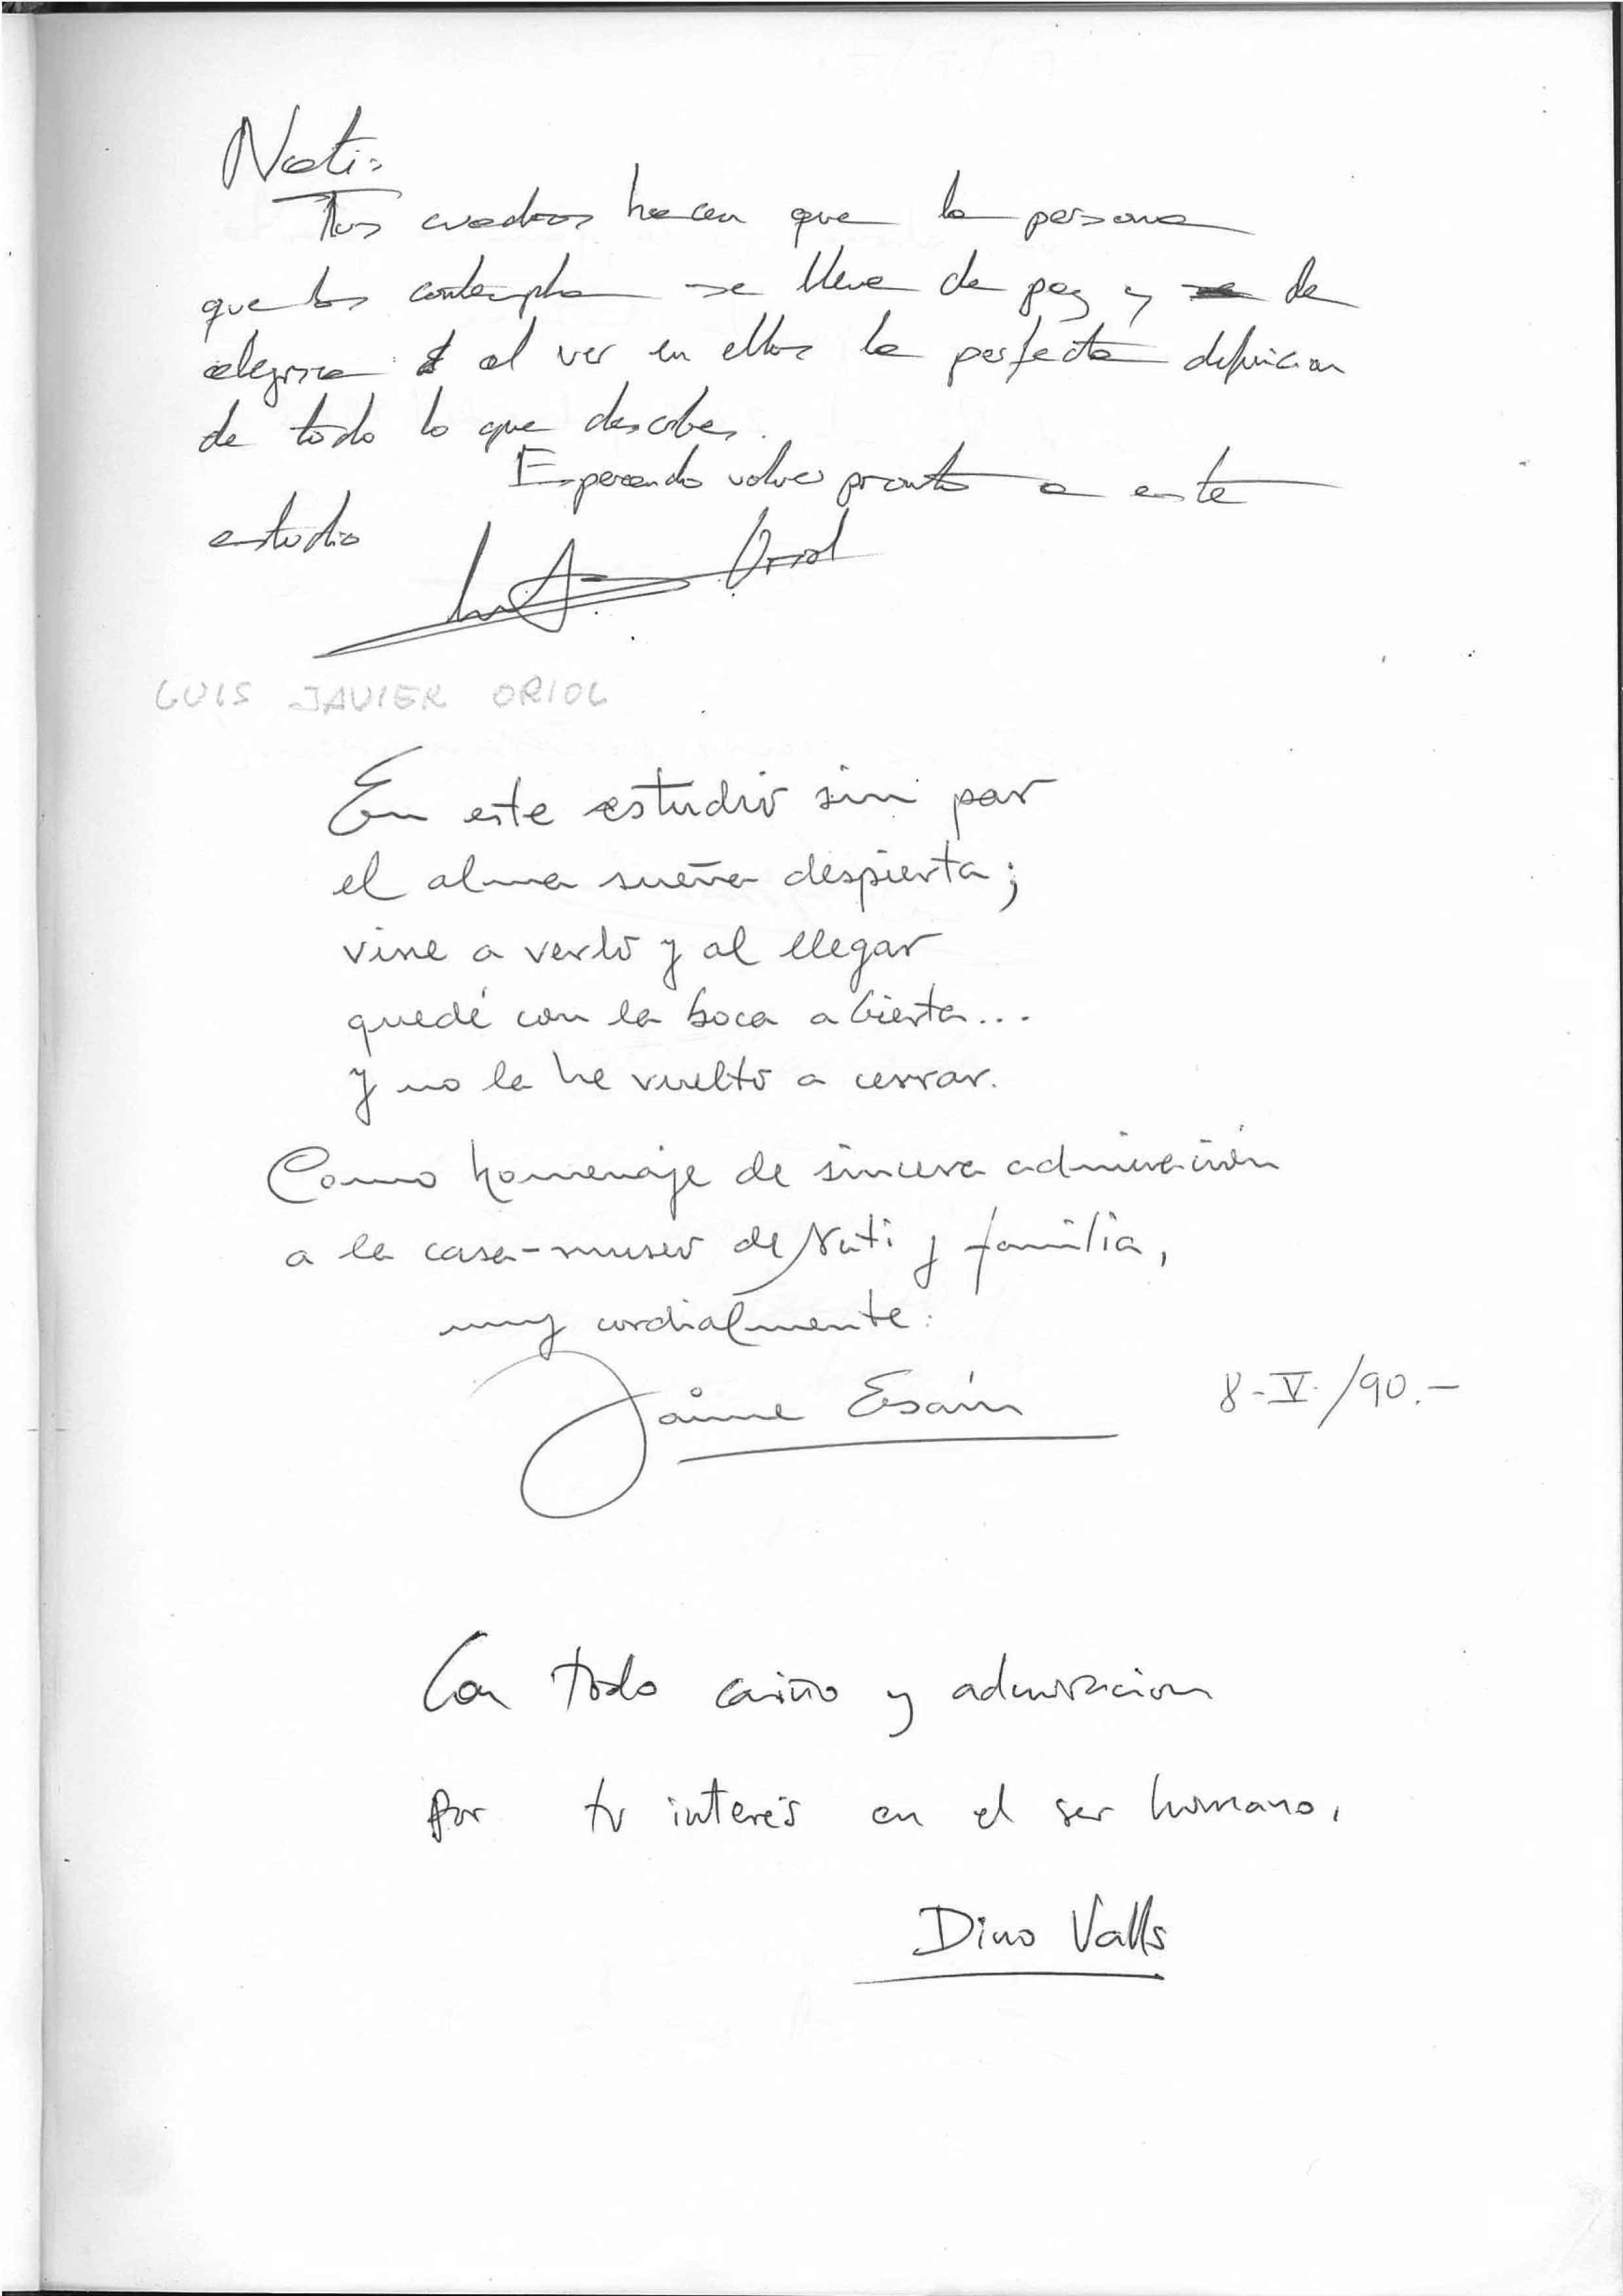 Nati:
Tus cuadros hacen que la persona
que los contempla se llene de paz y de
alegria al ver en ellos la perfecta definicion
de todo lo que describes.
Esperando volver pronto a este
estudio
Oriol
LUIS JAVIER ORIOL
En este estudio sin par
el alma sueña despierta;
vine a verlo y al llegar
quedé con la boca abierta...
y no la he vuelto a cerrar.
Como homenaje de sincera admiración
a la casa-museo de Nati y familia,
muy cordialmente:
Jaime Esaín 8-V-/90.-
Con todo cariño y admiracion
por tu interés en el ser humano.
Dino Valls